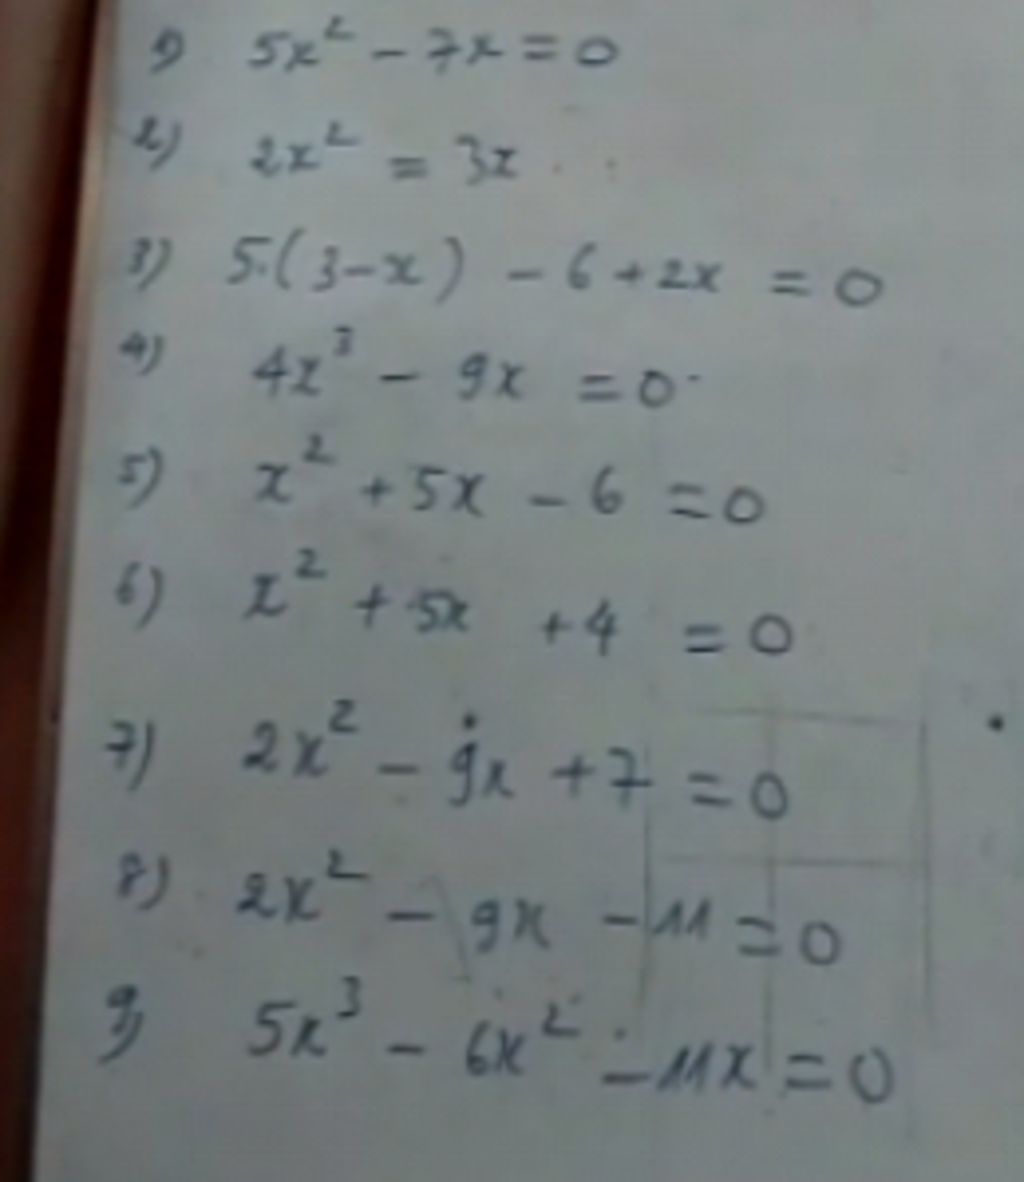 1) 5x² - 7x = 0
2) 2x² = 3x
3) 5.(3-x) - 6 + 2x = 0
4) 4x³ - 9x = 0
5) x² + 5x - 6 = 0
6) x² + 5x + 4 = 0
7) 2x² - 9x + 7 = 0
8) 2x² - 9x - 11 = 0
9) 5x³ - 6x² - 11x = 0